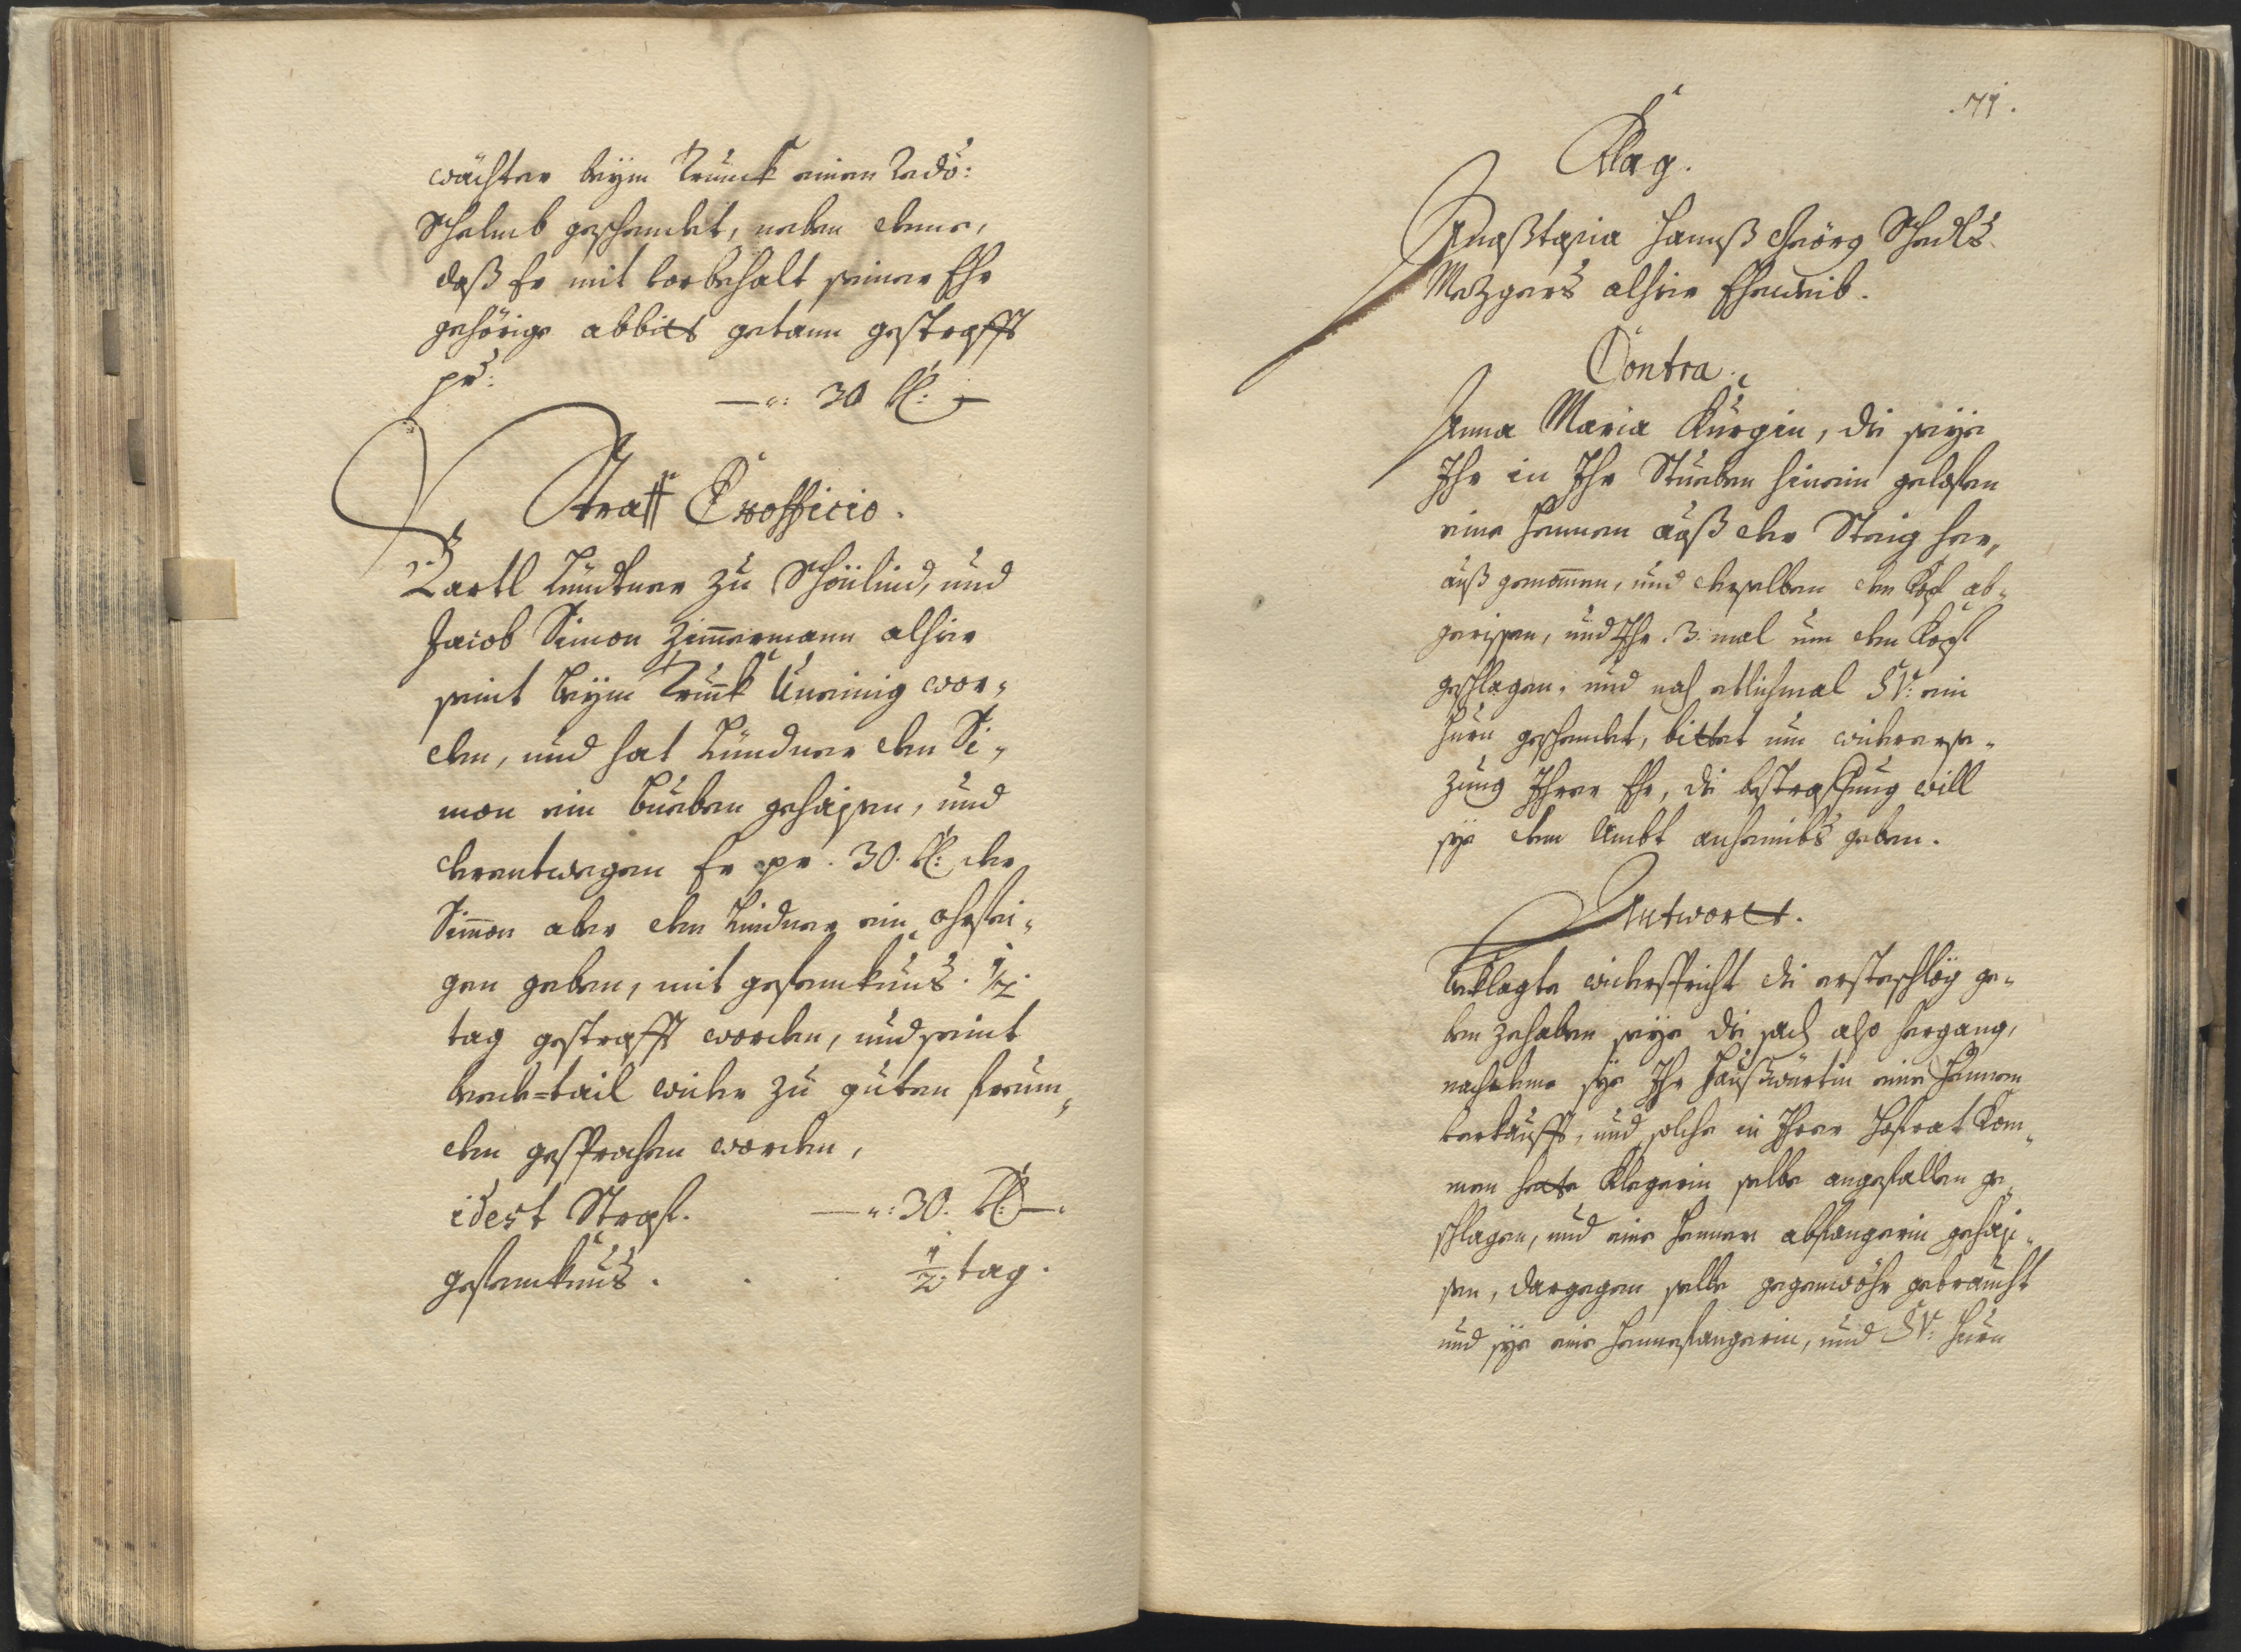 wächter beÿm Trunck einen redo:
Schelmb geschendet, neben deme,
daß Er mit vorbehalt seiner Ehr
gehörige abbitt gethann gestrafft
pr:
—": 30 kr: —
Straff Exofficio.
Bartl Lindtner zu Schönlind, und
Jacob Simon Zim̄ermann alhier
seint beÿm Trunck Uneinig wor„
den, und hat Lündner den Si„
mon ein bueben gehaissen, und
derentwegen Er pr. 30. kr: der
Sim̄on aber dem Lindner ein ohrfei„
gen geben, mit gefenknus . 1/2.
tag gestrafft worden, und seint
beede=tail wider zu guten freün„
den gesprochen worden,
idest Straf. —": 30. kr: —.
gefenknus . . . 1/2. tag.
. 71 .
Klag.
Anaßtasia Hannß Geörg Schedls
Mezgers alhier Eheweib.
Contra.
Anna Maria Kürgin, die seÿe
Ihr in Ihr Stueben hinein gelofen
eine Hennen auß der Steig her„
auß genom̄en, und derselben den Kopf ab„
gerissen, und Ihr .3. mal um den Kopf
geschlagen, und noch etlichmal SV: ein
Hurn geschendet, bittet um widerersе„
zung Ihrer Ehr, die bestraffung will
sÿe dem Ambt anheimbs geben.
Antwortt.
beklagte widerspricht die ersteschlög ge„
ben zehaben seÿe die sach also hergang,
nachdeme sÿe Ihr Haußwürtin eine Hennen
verkaufft, und solche in Ihrer Hofrat Kom„
men hette Klegerin selbe angefallen ge„
schlagen, und eine Hennen abfangerin gehais„
sen, dargegen selbe gegenwöhr gebraucht
und sÿe eine Hennefangerin, und SV: Hurn